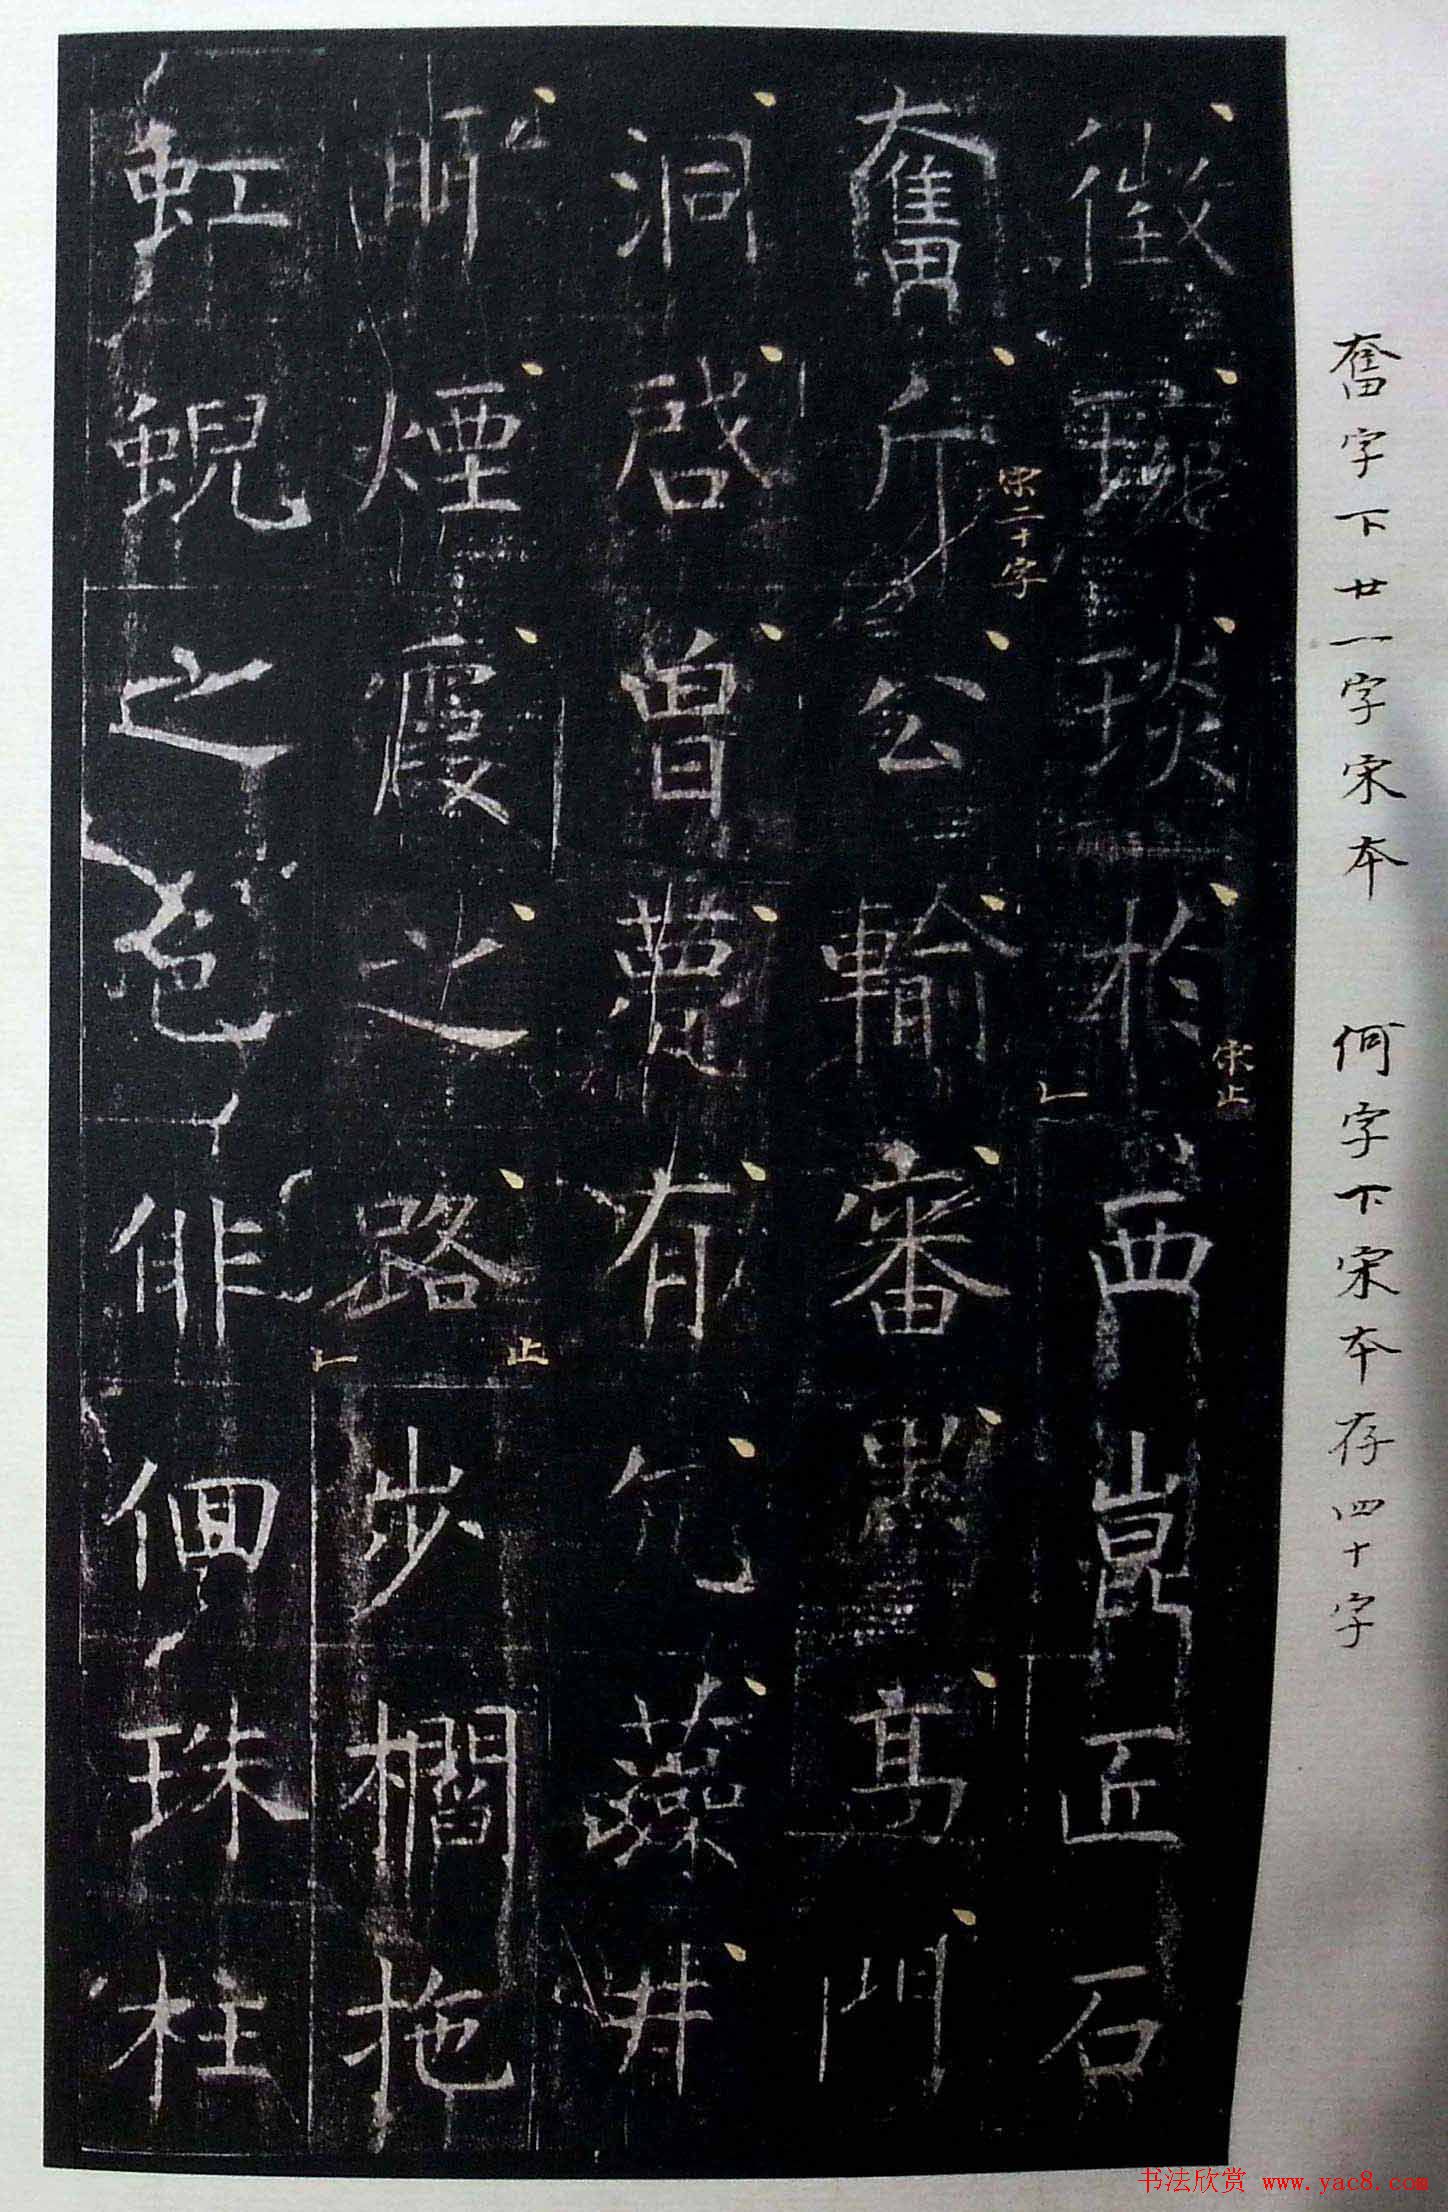 奮字下廿一字宋本　何字下宋本存四十字
徵琬琰於西崑匠石
宋止
奮斤公輸審墨高門
宋二十字
洞啓曾薨有亢藻井
眀煙霞之路步櫩拖
止
虹蜺之色俳佪珠柱
书法欣赏 www.yac8.com